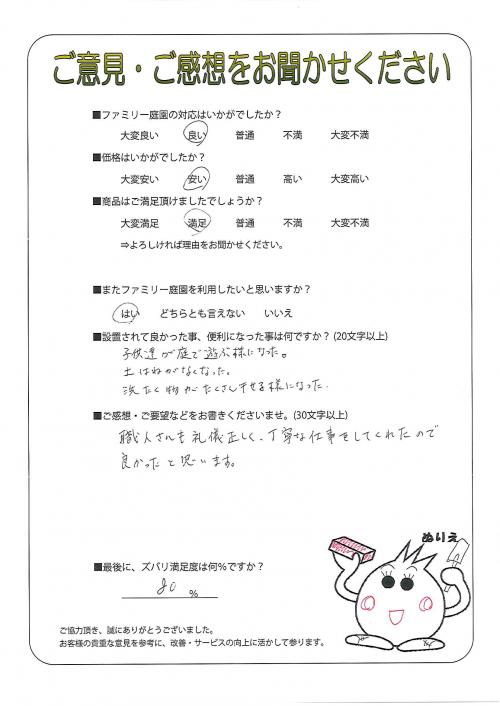 ご意見・ご感想をお聞かせください
■ファミリー庭園の対応はいかがでしたか?
大変良い 良い 普通 不満 大変不満
■価格はいかがでしたか?
大変安い 安い 普通 高い 大変高い
■商品はご満足頂けましたでしょうか?
大変満足 満足 普通 不満 大変不満
⇒よろしければ理由をお聞かせください。
■またファミリー庭園を利用したいと思いますか?
はい どちらとも言えない いいえ
■設置されて良かった事、便利になった事は何ですか? (20文字以上)
子供達が庭で遊ぶ様になった。
土はねがなくなった。
洗たく物がたくさん干せる様になった.
■ご感想・ご要望などをお書きくださいませ。(30文字以上)
職人さんも礼儀正しく、丁寧な仕事をしてくれたので
良かったと思います。
ぬりえ
■最後に、ズバリ満足度は何%ですか?
80 %
ご協力頂き、誠にありがとうございました。
お客様の貴重な意見を参考に、改善・サービスの向上に活かして参ります。